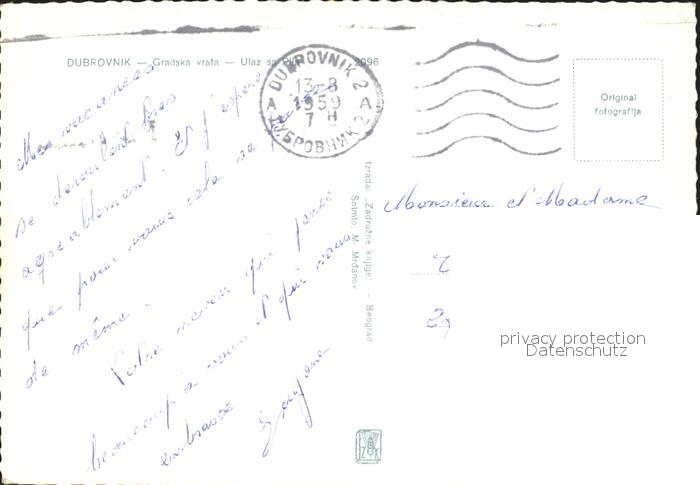 DUBROVNIK — Gradska vrata — Ulaz sa
2096
DUBROVNIK 2
13-8
A 1959 A
7 H
ДУБРОВНИК 2
Original
fotografija
Mes vacances
se déroulent très
agréablement. Et j'espère
que pour vous cela se
de même.
Votre neveu qui pense
beaucoup à vous et qui vous
embrasse
Izrada: „Zadružne knjige" — Beograd
Snimio: M. Mrđanov
Monsieur et Madame
privacy protection
Datenschutz